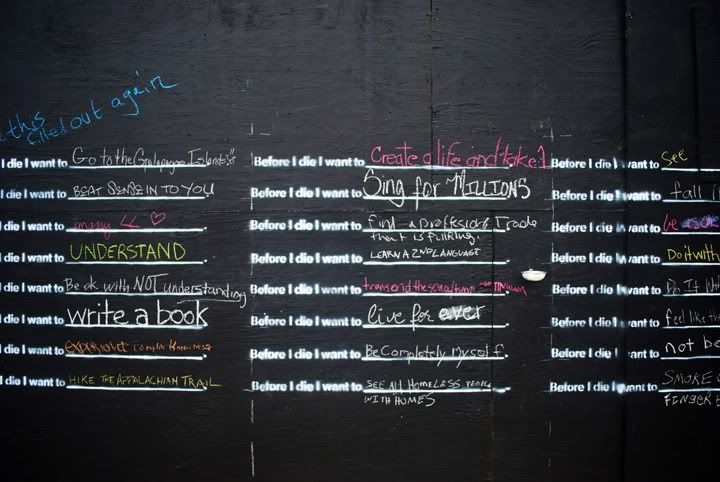 this
filled out again
I die I want to Go to the Galapagos Islands!
I die I want to BEAT SENSE IN TO YOU
I die I want to marry LL
I die I want to UNDERSTAND
I die I want to Be ok with NOT understanding
I die I want to write a book
I die I want to EXPERIENCE COMPLETE HAPPINESS
I die I want to HIKE THE APPALACHIAN TRAIL
Before I die I want to Create a life and take 1
Before I die I want to Sing for MILLIONS
Before I die I want to find a profession/trade
that is fulfilling.
Before I die I want to LEARN A 2ND LANGUAGE
Before I die I want to transend the
Before I die I want to live for ever
Before I die I want to Be Completely Myself.
Before I die I want to SEE ALL HOMELESS PEOPLE
WITH HOMES
Before I die I want to see
Before I die I want to fall
Before I die I want to be
Before I die I want to Do it with
Before I die I want to Do It
Before I die I want to feel like
Before I die I want to not be
Before I die I want to SMOKE
FINGER